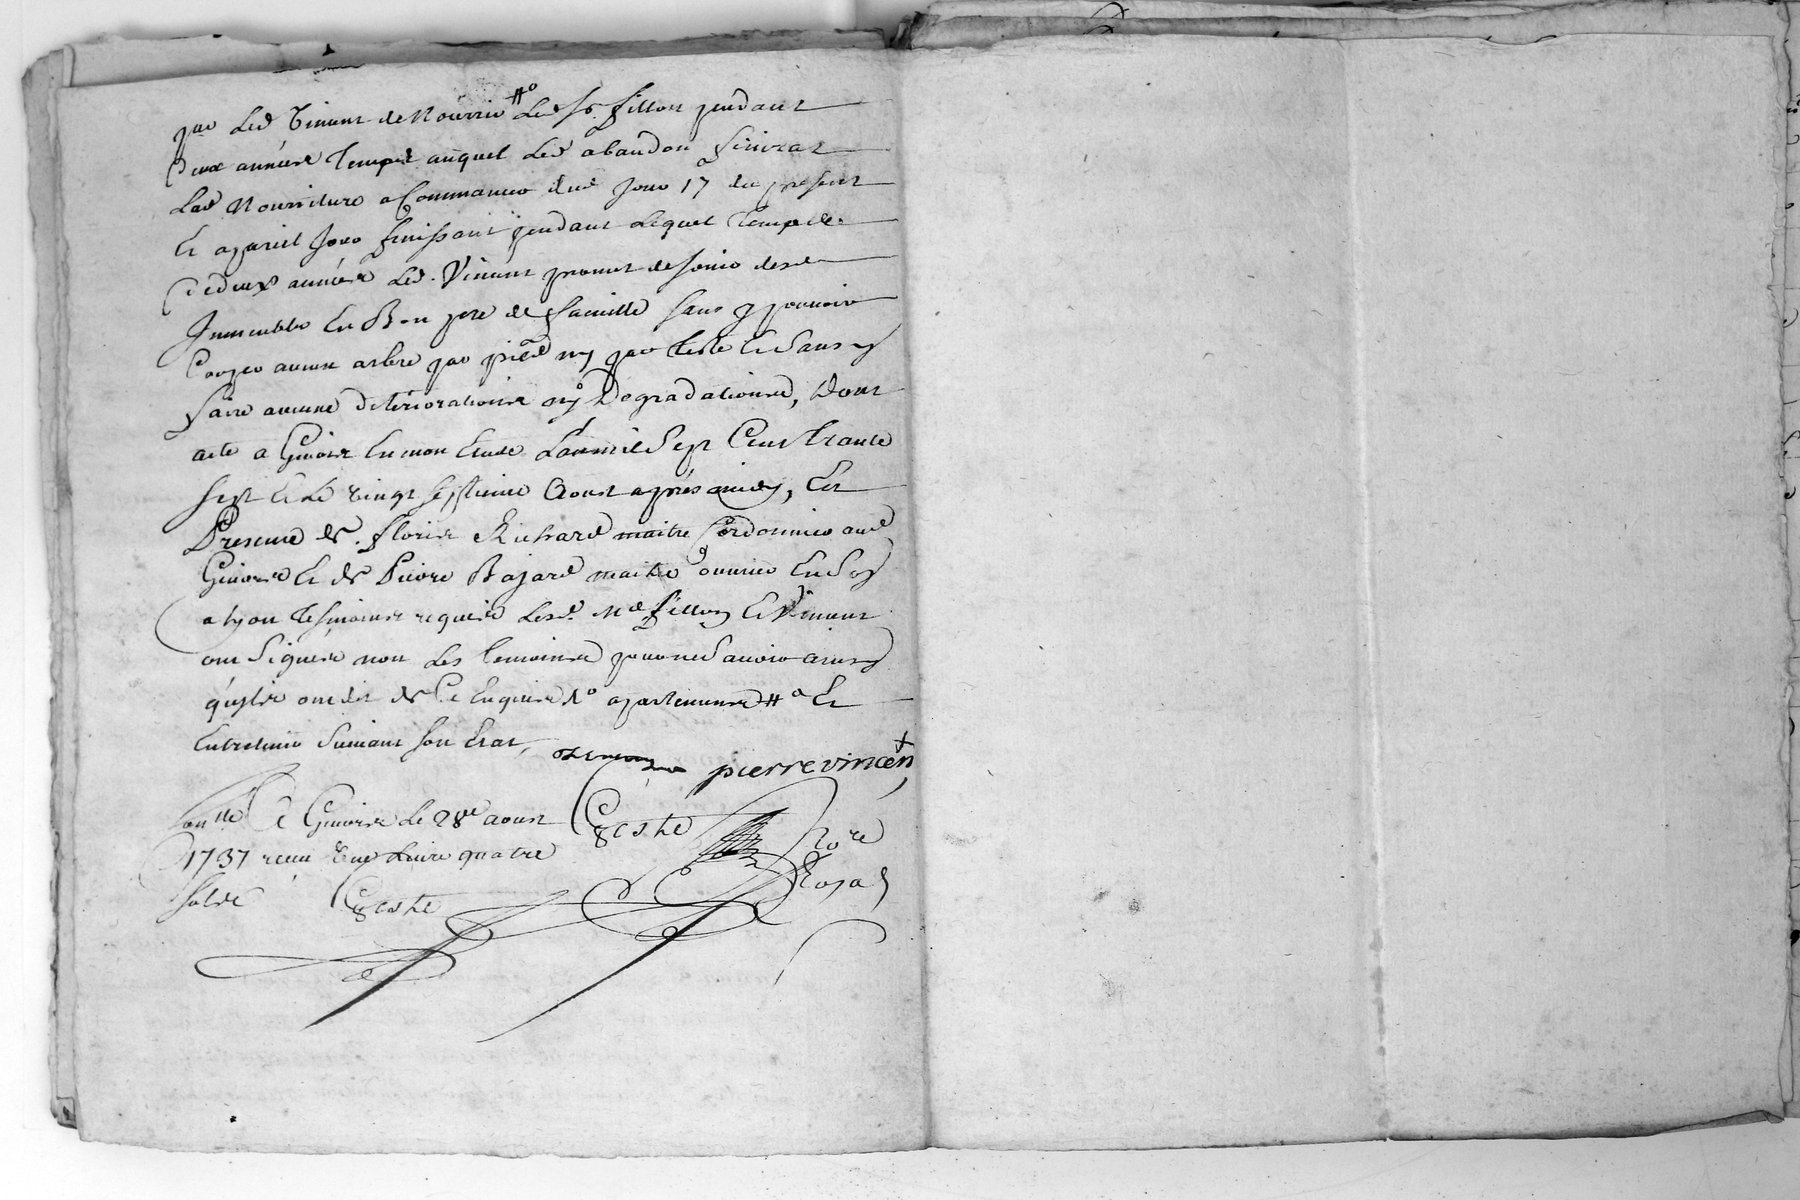 par Led Vincent de Nourrir #° Led Sr. fillon pendant
deux années temps auquel Led abandon finirat
Lad Nourriture a Commancer dud Jour 17e du present
Et a pareil Jour finissant pendant Lequel temps de
deux années Led. Vincent promet de Jouir desd.
Immeuble En Bon pere de famille sans y pouvoir
Couper aucun arbre par pied ny par teste Et sans y
faire aucune deteriorations ny Degradations, Dont
acte a Givors En mon Etude L'an mil Sept Cent trante
Sept Et Le vingt septieme Aoust aprés midy, En
Presence de. floris Richard maitre Cordonnier aud
Givors Et de Pierre Bajard maitre ouvrier En Soy
a Lyon tesmoins requis Lesd. Me fillon Et Vincent
ont Signés non Les temoins pour ne Savoir ainsy
qu'ils ont dit de Ce Enquis d° apartenens #° Et
Entretenir Suivant Son Etat,
pierre vincen
Con lle A Givors Le 28e aoust
1737 receu Une Livre quatre
Sols
Coste
Coste
No re
Royal